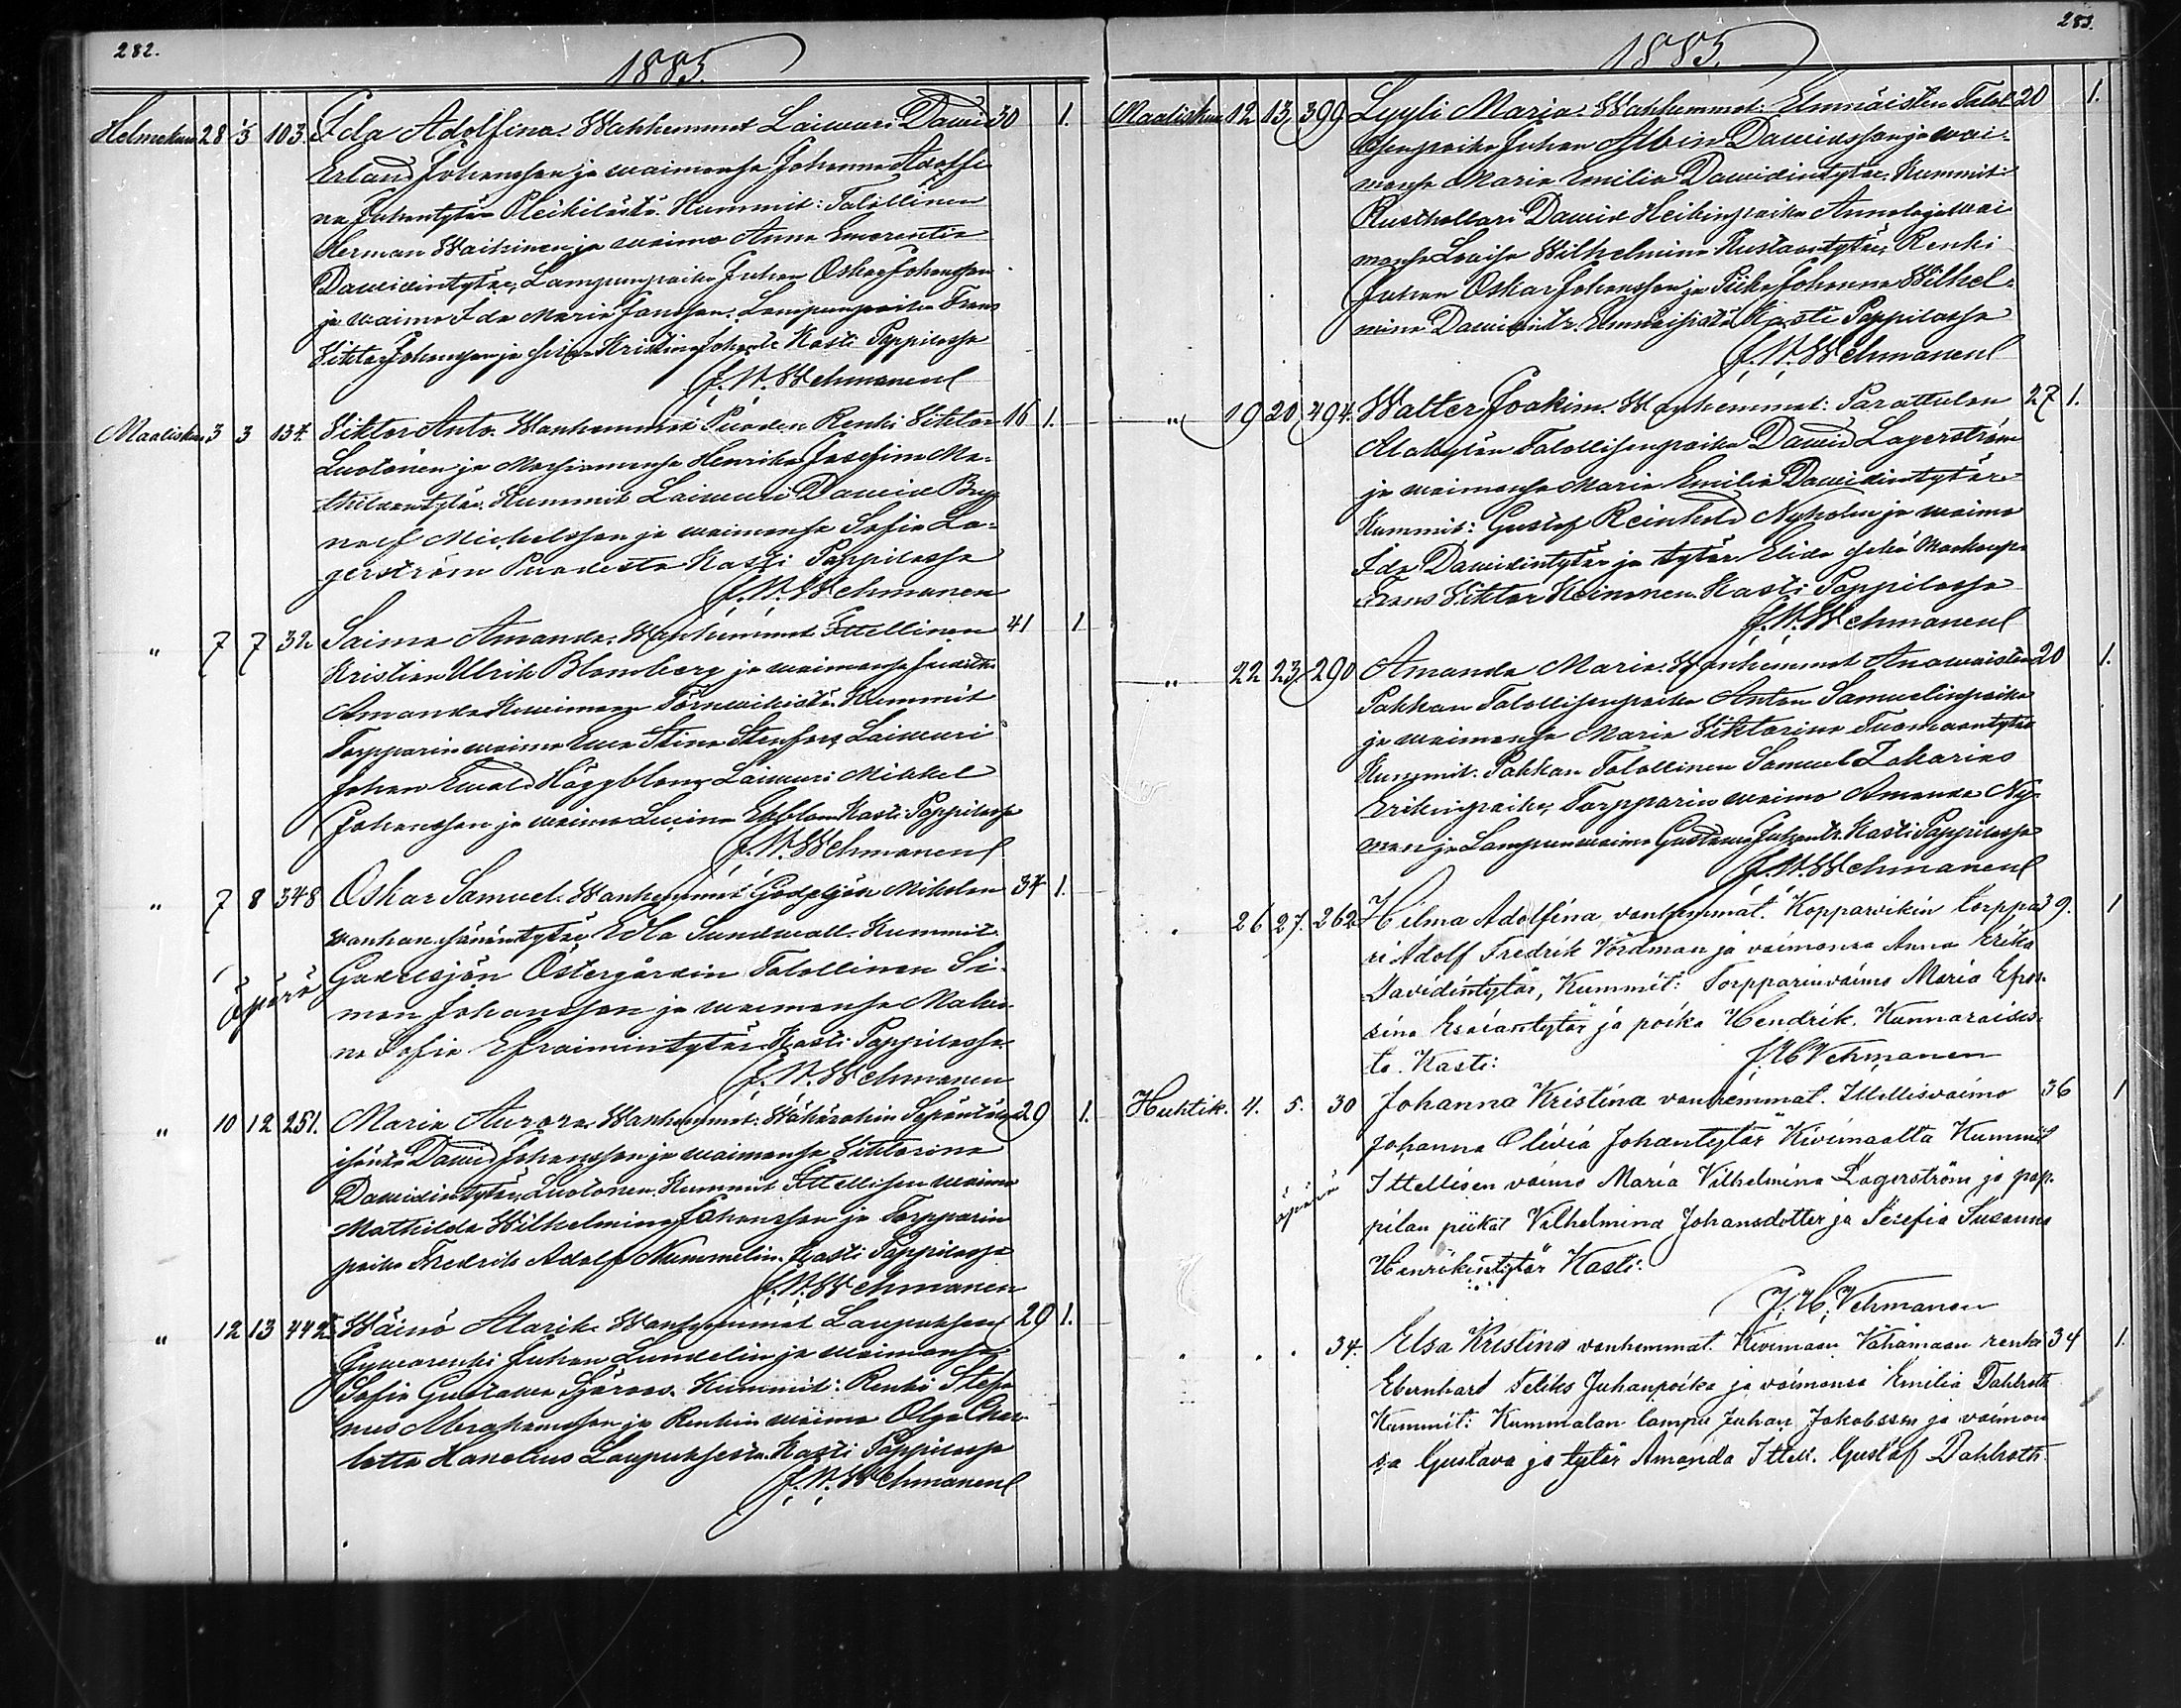 282.
1885.
Helmekuu 28 5 103. Ida Adolfina. Wanhemmat Laiwuri Dawid 30 1.
Erland Johansson ja waimonsa Johanna Adolfi
na Juhantytär Pleikilästä. Kummit: Talollinen
Herman Waihinen ja waimo Anna Emerentia
Dawidintytär, Lampunpoika Juhan Oskar Johansson
ja waimo Ida Maria Jansson. Lampunpoika Frans
Viktor Johansson ja Kristina Kasti Pappilassa
J. W. Wehmanen
Maalisku 3 3 134. Viktor Anto. Wanhemmat Puoden Renki Viktor 16 1.
Luotonen ja waimonsa Henrika Josefina Ma-
tintytär. Kummit Laiwuri Dawid
Mickelsson ja waimonsa Sofia La-
gerström Puodesta Kasti Pappilassa
J. W. Wehmanen
" 7 7 32 Saima Amanda. Wanhemmat Ittellinen 41 1
Kristian Ulrik Blomberg ja waimonsa
Amanda Kummit
Torpparinwaimo Ewa Stina Stenfors, Laiwuri
Johan Ewald Häggblom, Laiwuri Mikkel
Johansson ja waimo Ekblom Kasti Pappilassa
J. W. Wehmanen
" 7 8 348 Oskar Samuel. Wanhemmat Godelsjön Mikolan 34 1.
wanhan isännän tytär Edla Sundwall. Kummit
äpärä Godelsjön Östergårdin Talollinen Si-
mon Johansson ja waimonsa
na Sofia Efraimintytär Kasti Pappilassa
J. W. Wehmanen
" 10 12 251. Maria Aurora. Wanhemmat: 29 1.
isäntä Dawid Johansson ja waimonsa Viktorina
Dawidintytär, Luotonen. Kummit Ittellisen waimo
Mathilda Wilhelmina Johansson ja Torpparin
poika Fredrik Adolf Nummelin. Kasti Pappilassa
J. W. Wehmanen
" 12 13 442 Wäinö Alarik. Wanhemmat Laupuksen 29 1.
Juhan Lundelin ja waimonsa
Sofia Gustawa Sjöroos. Kummit: Renki Stefa
nus Abrahamsson ja Renkin waimo Olga Char
lotta Hanelius Laupuksesta. Kasti Pappilassa
J. W. Wehmanen
283.
1885.
Maaliskuu 12 13 399 Lyyli Maria. Wanhemmat: Elmnäisten Talol 20 1.
lisenpoika Juhan Albin Dawidsson ja wai-
monsa Maria Emilia Dawidintytär. Kummit:
Rusthollari Dawid Heikinpoika ja wai
monsa Lowisa Wilhelmina Kustaantytär, Renki
Juhan Oskar Johansson ja Piika Johanna Wilhel-
mina Dawidintr. Kasti Pappilassa
J. W. Wehmanen
" 19 20 494. Walter Joakim. Wanhemmat: Parattulan 27 1.
Alakylän Talollisenpoika Dawid Lagerström
ja waimonsa Maria Emilia Dawidintytär
Kummit: Gustof Reinhold Nyholm ja waimo
Ida Dawidintytär ja tytär Elida sekä
Frans Viktor Heinonen. Kasti Pappilassa
J. W. Wehmanen
" 22 23 290 Amanda Maria. Wanhemmat Anawaisten 20 1.
Pakkan Talollisenpoika Anton Samuelinpoika
ja waimonsa Maria Viktorina Tuomaantytär
Kummit. Pakkan Talollinen Samuel Zakarias
Erikinpoika, Torpparin waimo Amanda Ny-
man ja Lampunwaimo Gustawa Juhantr. Kasti Pappilassa
J. W. Wehmanen
. 26 27. 262 Hilma Adolfina vanhemmat. Kopparvikin torppa 39. 1
ri Adolf Fredrik Vördman ja vaimonsa Anna Erika
Davidintytär, Kummit: Torpparinvaimo Maria Efro-
sina Esaiantytär ja poika Hendrik. Kannaraisis-
ta. Kasti: J. W. Vehmanen
Huhtik. 4. 5. 30 Johanna Kristina vanhemmat. Ittellisvaimo 36 1
Johanna Olivia Johantytär Kivimaalta Kummit
äpärä Ittellisen vaimo Maria Vilhelmina Lagerström ja pap-
pilan piikat Vilhelmina Johansdotter ja Serefia Susanna
Henrikintytär Kasti:
J. W. Vehmanen
. . . 34. Elsa Kristina vanhemmat. Kivimaan Vähämaan renki 34 1.
Ebernhard Feliks Juhanpoika ja vaimonsa Emilia Dahlroth
Kummit: Kummalan lampu Juhan Jakobsson ja vaimon
sa Gustava ja tytär Amanda Ittell. Gustaf Dahlroth.